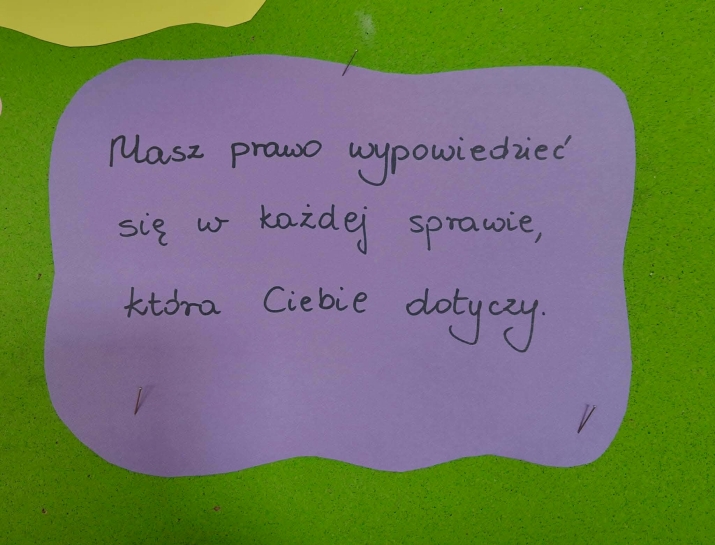 Masz prawo wypowiedzieć
się w każdej sprawie,
która Ciebie dotyczy.